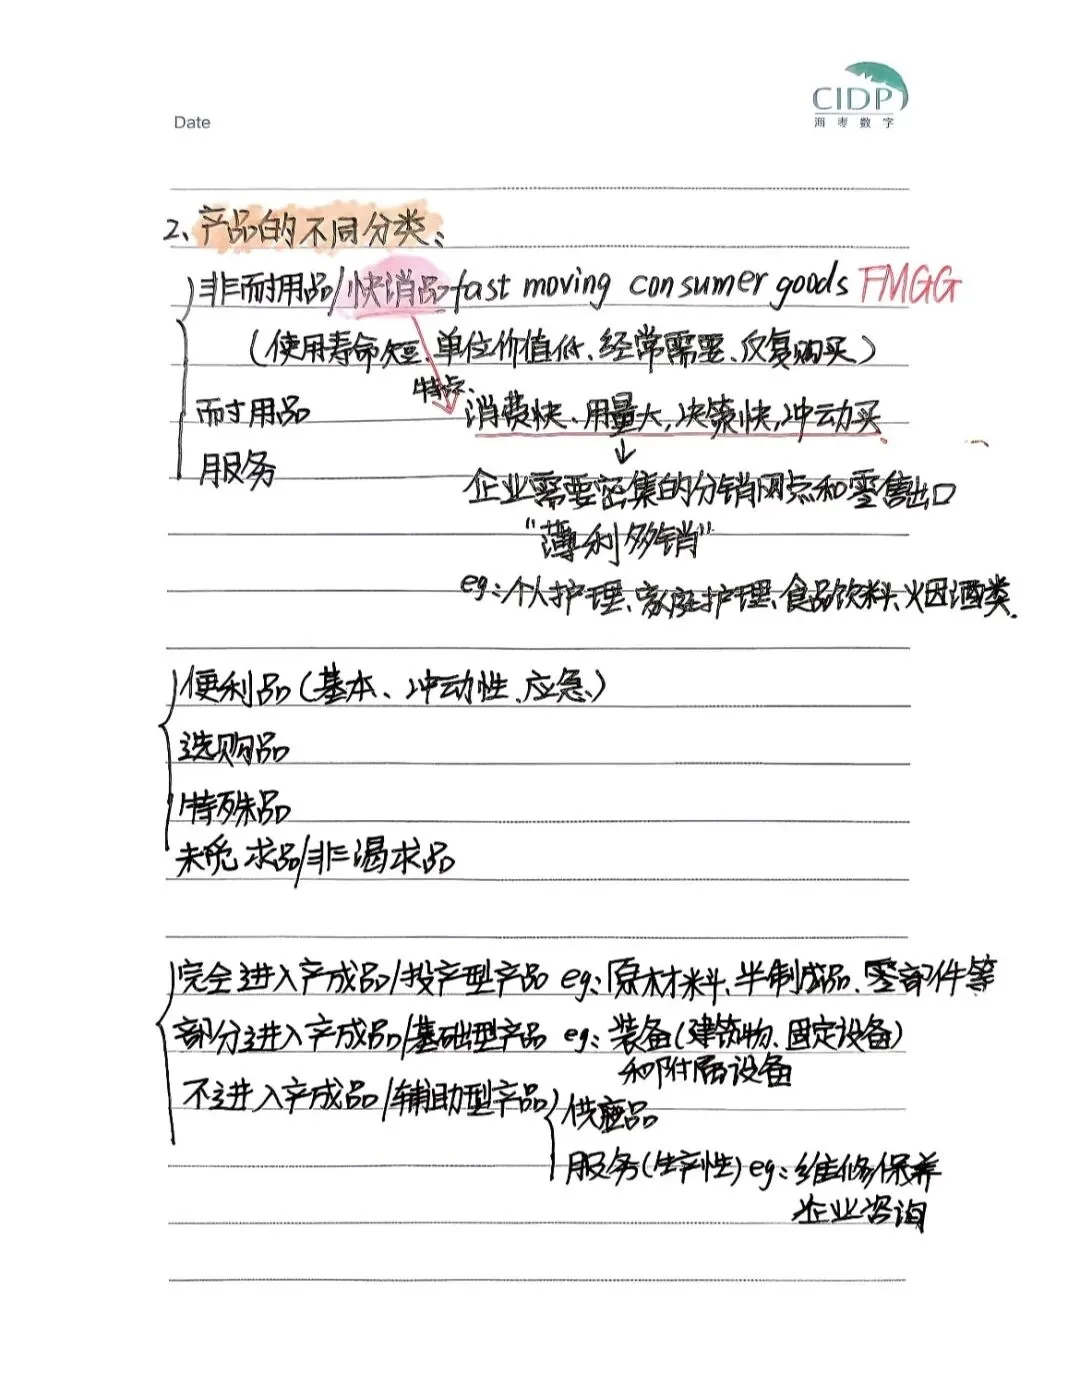 Date
CIDP
海枣数字
2、产品的不同分类:
非耐用品/快消品 fast moving consumer goods FMGG
(使用寿命短、单位价值低、经常需要、反复购买)
特点:
耐用品 消费快、用量大,决策快,冲动买
↓
服务
企业需要密集的分销网点和零售出口
"薄利多销"
eg:个人护理、家庭护理、食品饮料、烟酒类.
便利品(基本、冲动性、应急)
选购品
特殊品
未觅求品/非渴求品
完全进入产成品/投产型产品 eg:原材料、半制成品、零部件等
部分进入产成品/基础型产品 eg:装备(建筑物、固定设备)
和附属设备
不进入产成品/辅助型产品
供应品
服务(生产性) eg:维修保养
企业咨询